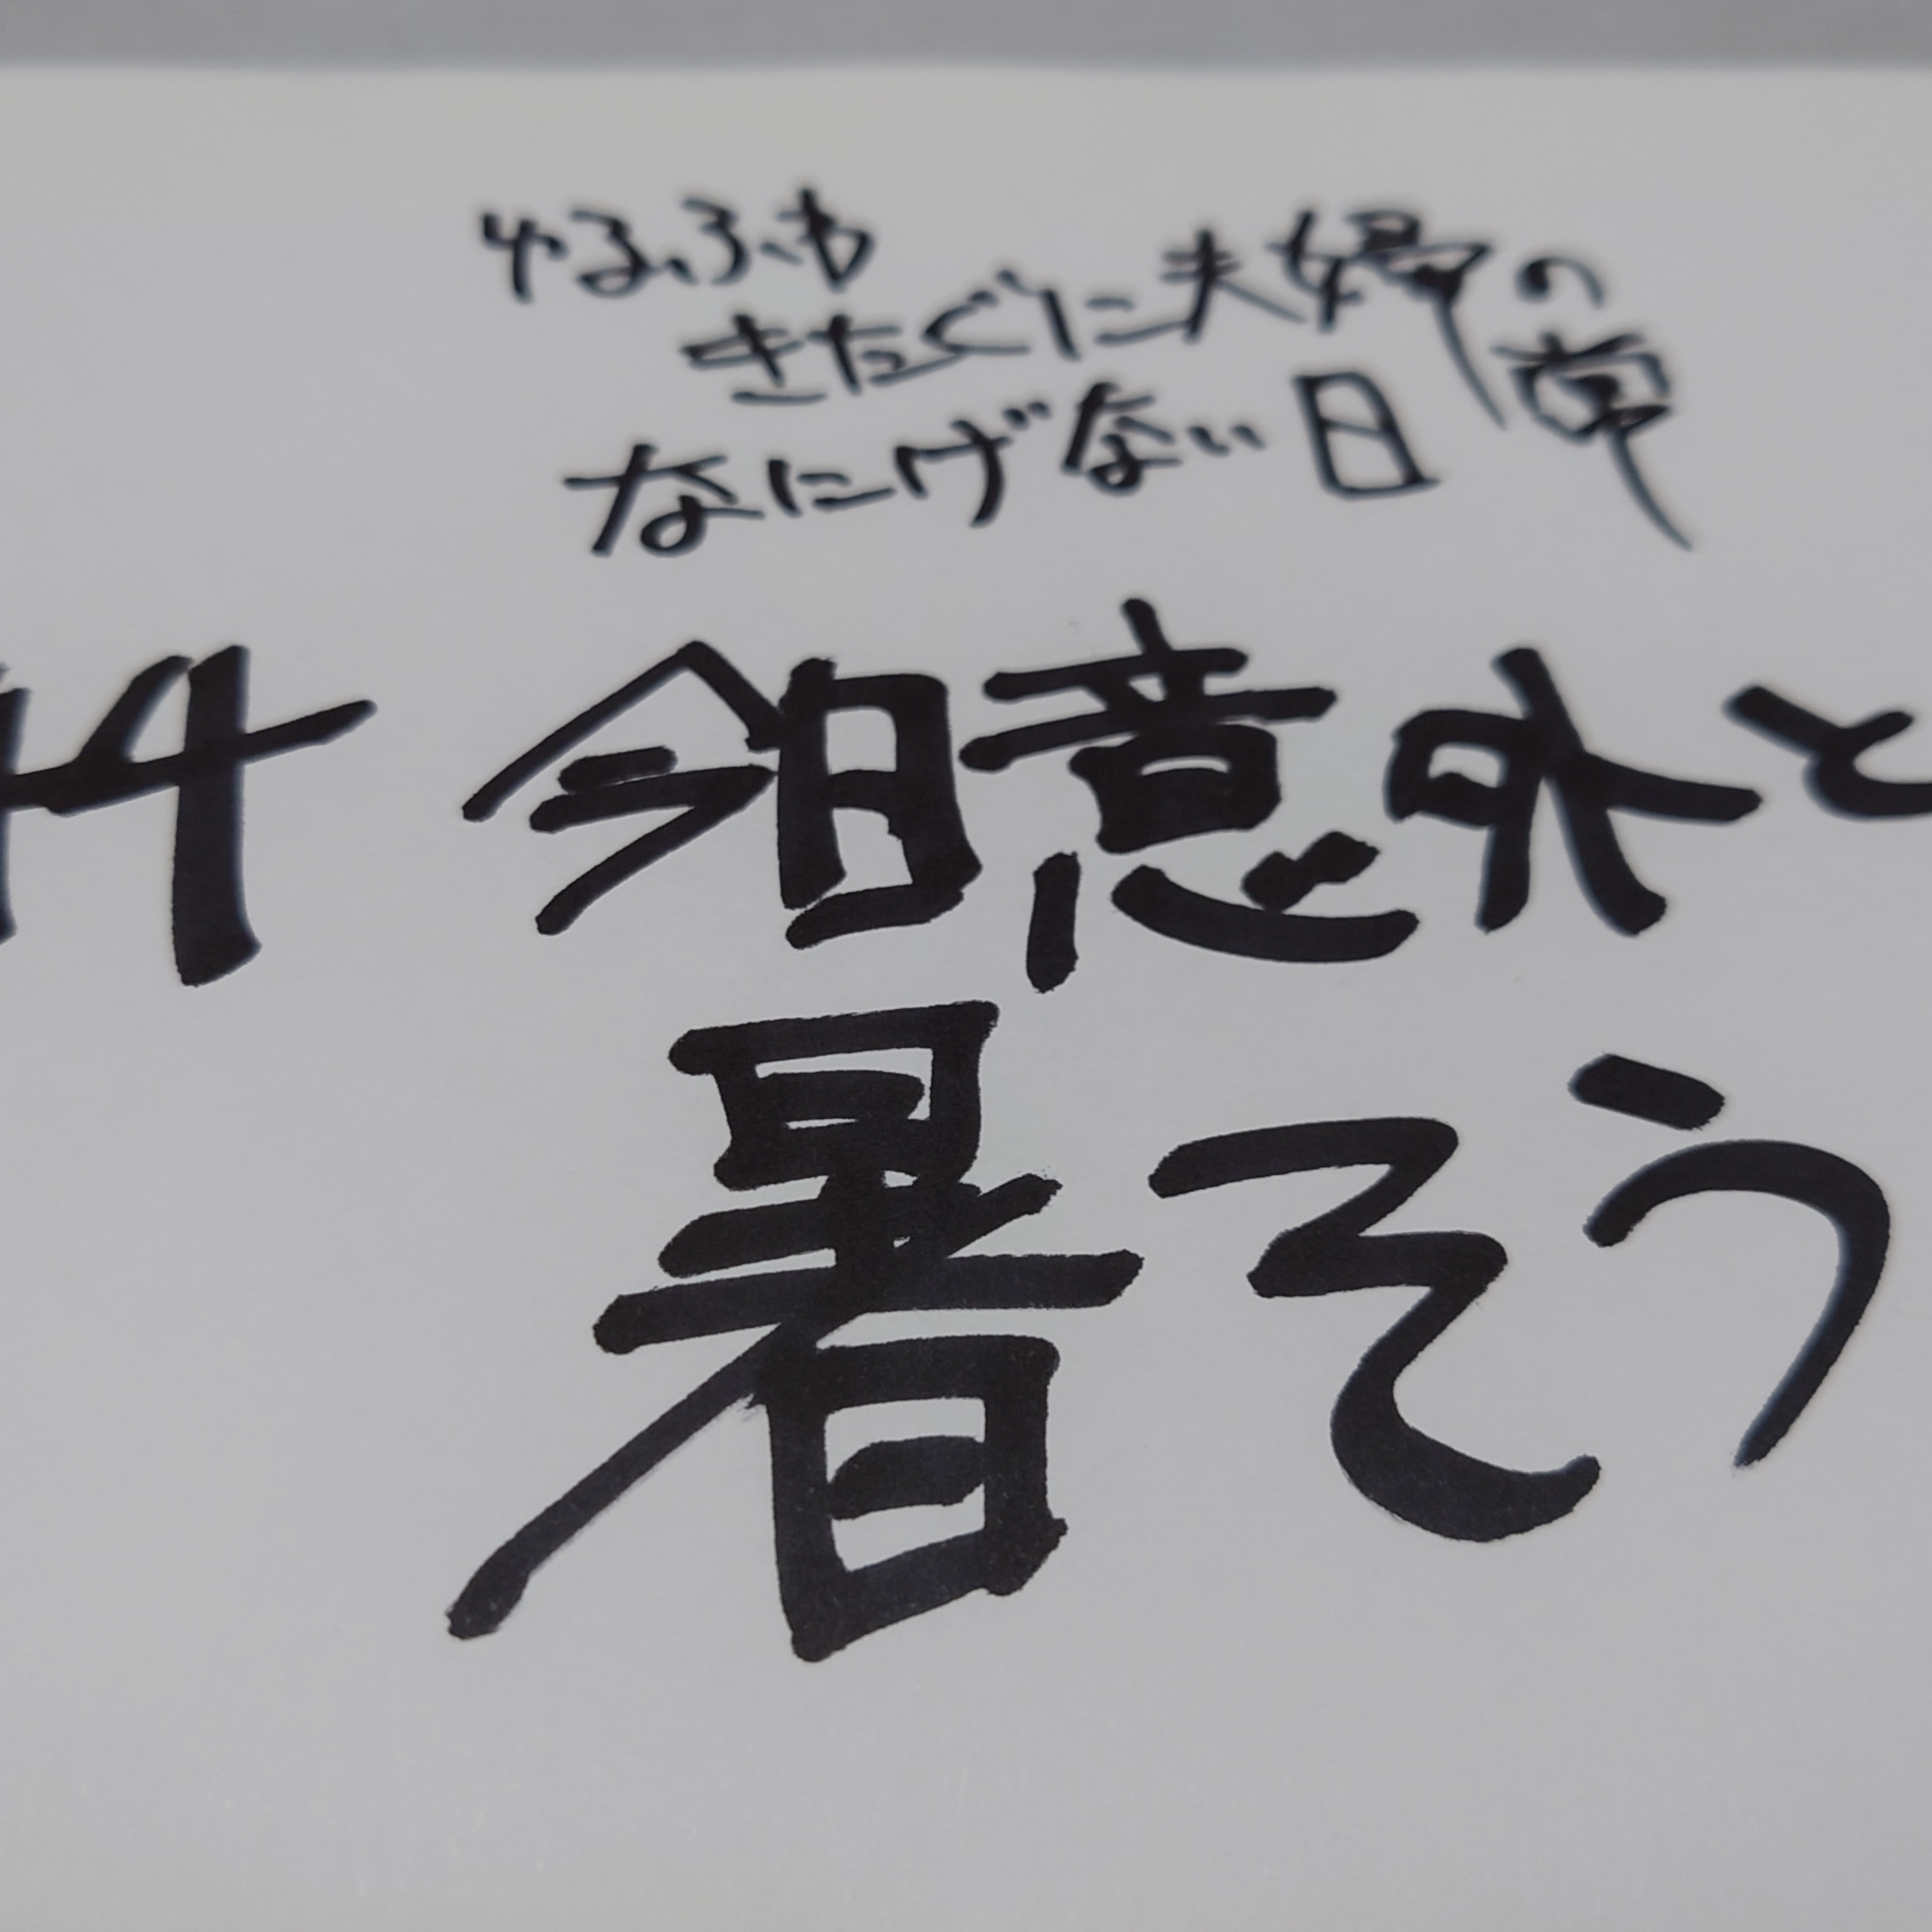 ゆるふわ
きたぐに夫婦の
なにげない日常
44 今日意外と
暑そう